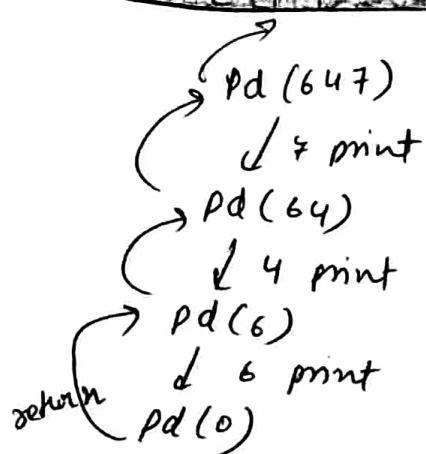 Pd (647)
7 print
Pd (64)
4 print
Pd (6)
6 print
return
Pd (0)